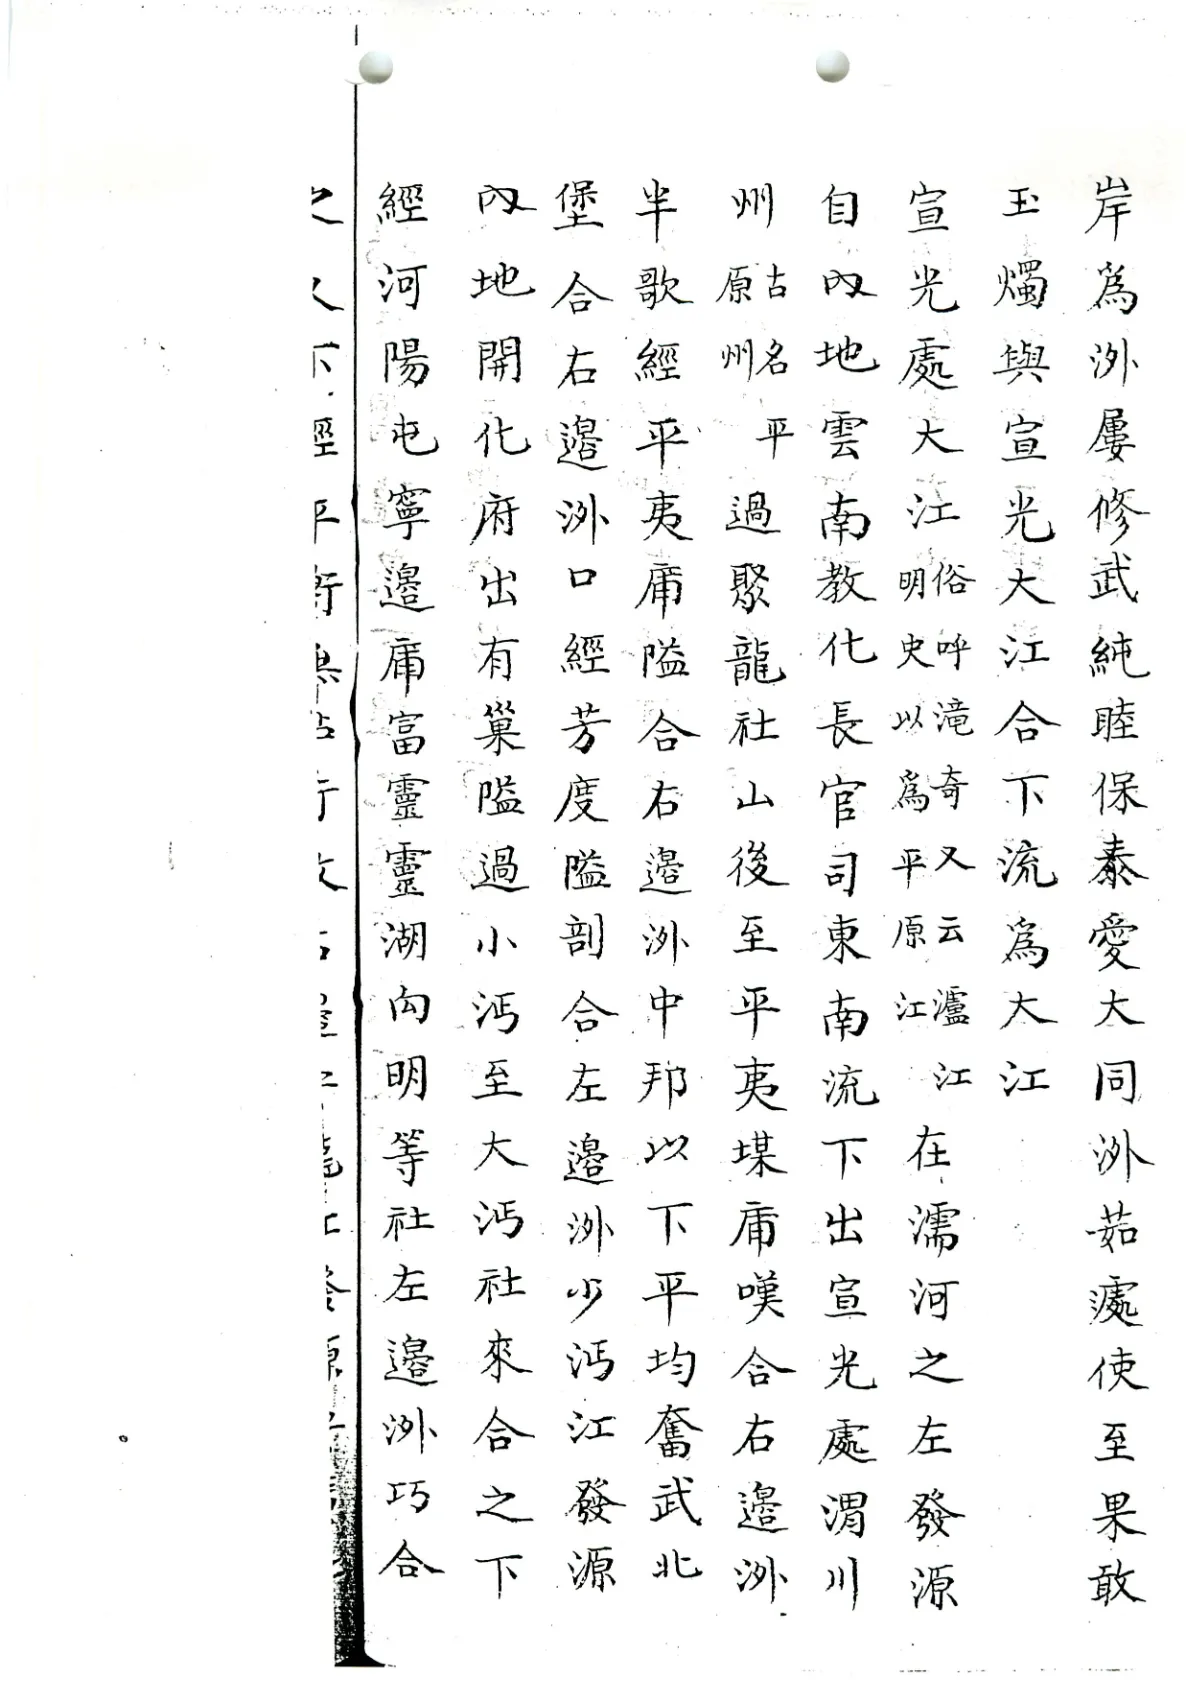 岸爲𣴓屢修武純睦保泰愛大同𣴓茹處使至果敢
玉燭與宣光大江合下流爲大江
宣光處大江俗呼滝奇又云瀘江明史以爲平原江在濡河之左發源
自内地雲南教化長官司東南流下出宣光處渭川
州古名平原州平過聚龍社山後至平夷堞庯嘆合右邉𣴓
半歌經平夷庯隘合右邉𣴓中邦以下平均奮武北
堡合右邉𣴓口經芳度隘剖合左邉𣴓少沔江發源
内地開化府出有巢隘過小沔至大沔社來合之下
經河陽屯寧邉庯富靈靈湖向明等社左邉𣴓巧合